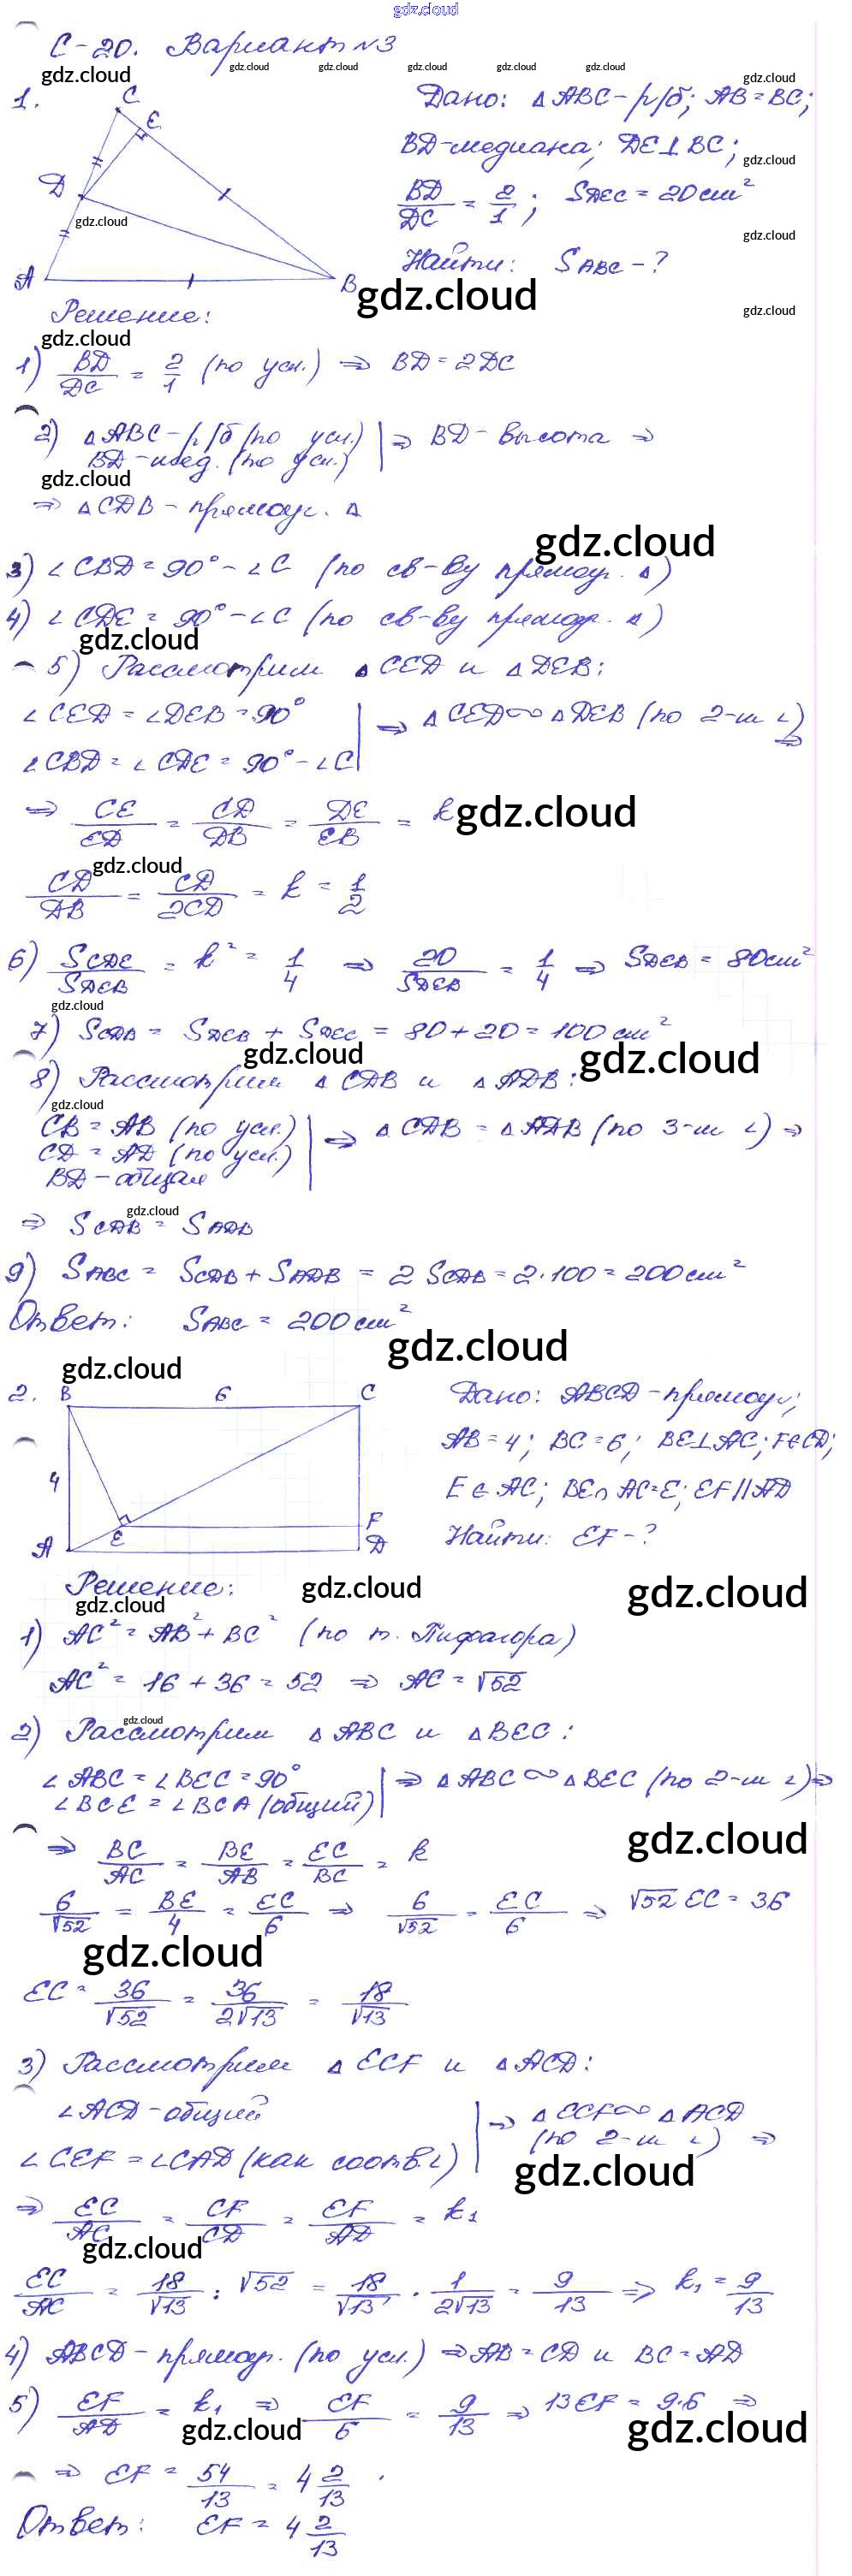 gdz.cloud
С-20. Вариант №3
gdz.cloud gdz.cloud gdz.cloud gdz.cloud gdz.cloud gdz.cloud gdz.cloud
1.
C
E
D
A
B
gdz.cloud
Дано: △ABC-р/б; AB=BC;
BD-медиана; DE⊥BC;
gdz.cloud
BD/DC = 2/1; SDEC = 20см²
gdz.cloud
Найти: SABC-?
gdz.cloud
gdz.cloud
Решение:
gdz.cloud
1) BD/DC = 2/1 (по усл.) ⇒ BD=2DC
2) △ABC-р/б (по усл.) | ⇒ BD-высота ⇒
BD-мед. (по усл.)
gdz.cloud
⇒ △CDB-прямоуг. △
gdz.cloud
3) ∠CBD=90°-∠C (по св-ву прямоуг. △)
4) ∠CDE=90°-∠C (по св-ву прямоуг. △)
gdz.cloud
5) Рассмотрим △CED и △DEB:
∠CED=∠DEB=90° | ⇒ △CED∽△DEB (по 2-м ∠) ⇒
∠CBD=∠CDE=90°-∠C
⇒ CE/ED = CD/DB = DE/EB = k
gdz.cloud
gdz.cloud
CD/DB = CD/2CD = k = 1/2
6) SCDE/SDEB = k² = 1/4 ⇒ 20/SDEB = 1/4 ⇒ SDEB = 80см²
gdz.cloud
7) SCDB = SDEB + SDEC = 80+20=100см²
gdz.cloud
gdz.cloud
8) Рассмотрим △CDB и △ADB:
gdz.cloud
CB=AB (по усл.) | ⇒ △CDB=△ADB (по 3-м ∠) ⇒
CD=AD (по усл.)
BD-общая
gdz.cloud
⇒ SCDB = SADB
9) SABC = SCDB + SADB = 2SCDB = 2·100=200см²
Ответ: SABC = 200см²
gdz.cloud
gdz.cloud
2.
B
6
C
4
A
E
F
D
Дано: ABCD-прямоуг;
AB=4; BC=6; BE⊥AC; F∈CD;
E∈AC; BE∩AC=E; EF||AD
Найти: EF-?
Решение:
gdz.cloud
gdz.cloud
gdz.cloud
1) AC²=AB²+BC² (по т. Пифагора)
AC²=16+36=52 ⇒ AC=√52
gdz.cloud
2) Рассмотрим △ABC и △BEC:
∠ABC=∠BEC=90° | ⇒ △ABC∽△BEC (по 2-м ∠) ⇒
∠BCE=∠BCA (общий)
gdz.cloud
⇒ BC/AC = BE/AB = EC/BC = k
6/√52 = BE/4 = EC/6 ⇒ 6/√52 = EC/6 ⇒ √52 EC=36
gdz.cloud
EC = 36/√52 = 36/2√13 = 18/√13
3) Рассмотрим △ECF и △ACD:
∠ACD-общий | ⇒ △ECF∽△ACD
(по 2-м ∠) ⇒
∠CEF=∠CAD (как соотв.∠)
gdz.cloud
⇒ EC/AC = CF/CD = EF/AD = k₁
gdz.cloud
EC/AC = 18/√13 : √52 = 18/√13 · 1/2√13 = 9/13 ⇒ k₁ = 9/13
4) ABCD-прямоуг. (по усл.) ⇒ AB=CD и BC=AD
5) EF/AD = k₁ ⇒ EF/6 = 9/13 ⇒ 13EF = 9·6 ⇒
gdz.cloud
gdz.cloud
⇒ EF = 54/13 = 4 2/13.
Ответ: EF = 4 2/13